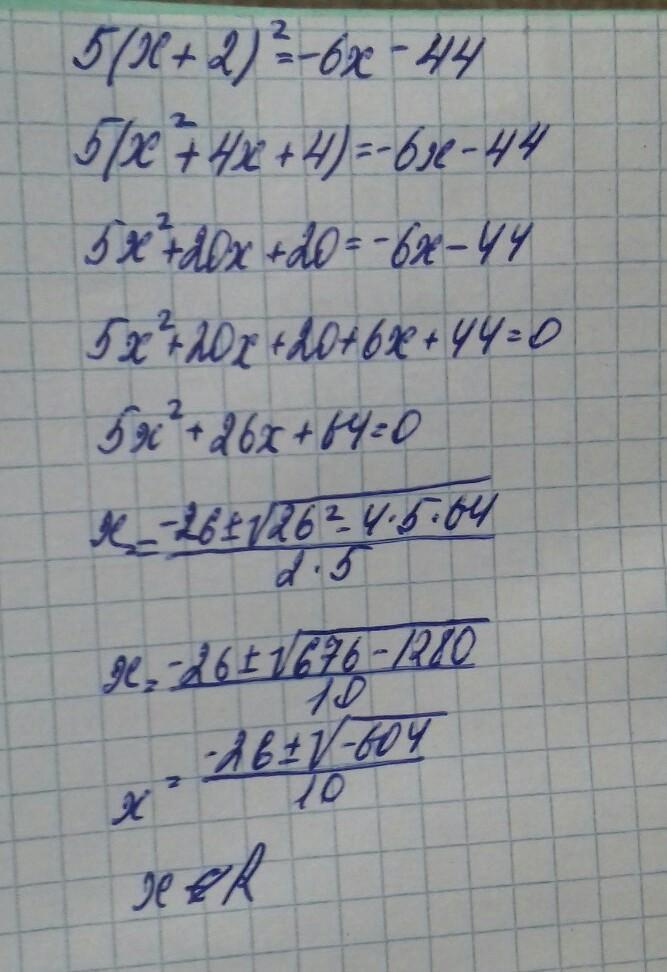 5(x+2)²=-6x-44
5(x²+4x+4)=-6x-44
5x²+20x+20=-6x-44
5x²+20x+20+6x+44=0
5x²+26x+64=0
x=-26±√26²-4·5·64
2·5
x=-26±√676-1280
10
x=-26±√-604
10
x∉R